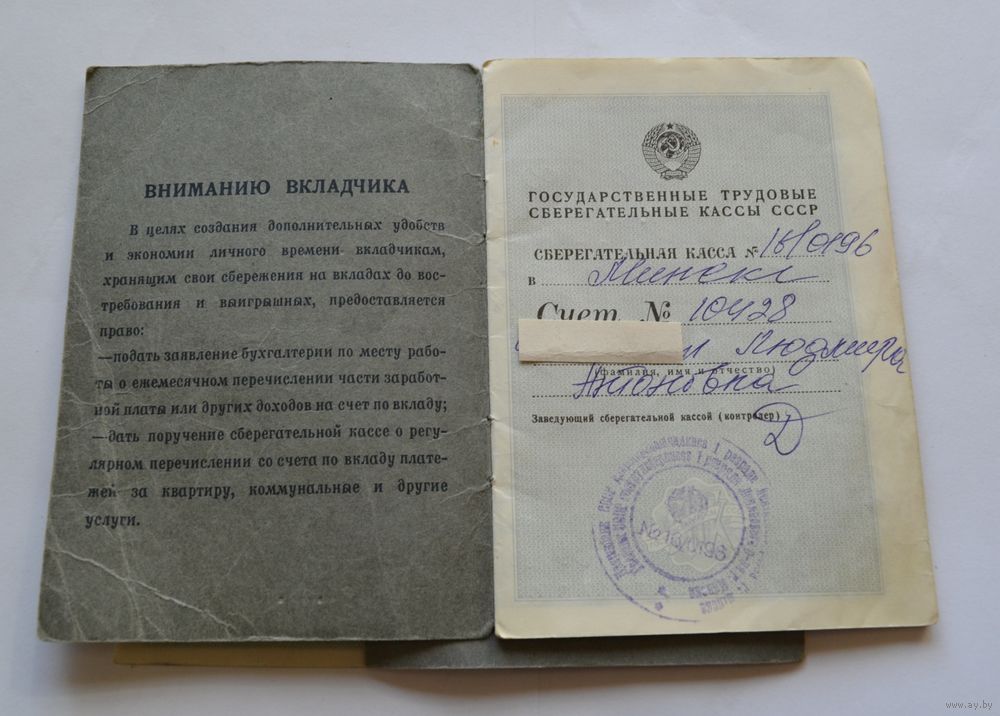 ВНИМАНИЮ ВКЛАДЧИКА
В целях создания дополнительных удобств
и экономии личного времени вкладчикам,
хранящим свои сбережения на вкладах до вос-
требования и выигрышных, предоставляется
право:
—подать заявление бухгалтерии по месту рабо-
ты о ежемесячном перечислении части заработ-
ной платы или других доходов на счет по вкладу;
—дать поручение сберегательной кассе о регу-
лярном перечислении со счета по вкладу плате-
жей за квартиру, коммунальные и другие
услуги.
ГОСУДАРСТВЕННЫЕ ТРУДОВЫЕ
СБЕРЕГАТЕЛЬНЫЕ КАССЫ СССР
СБЕРЕГАТЕЛЬНАЯ КАССА №
в Минске
Счет № 10428
Людмила
(фамилия, имя и отчество)
Антоновна
Заведующий сберегательной кассой (контролер)
www.ay.by